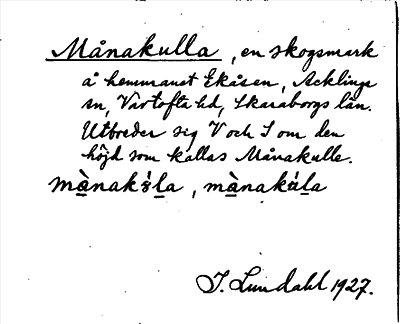 Månakulla, en skogsmark
å hemmanet Ekåsen, Acklinga
sn, Vartofta hd, Skaraborgs län.
Utbreder sig V och S om den
höjd som kallas Månakulle.
mànak la, mànak la
I. Lundahl 1927.